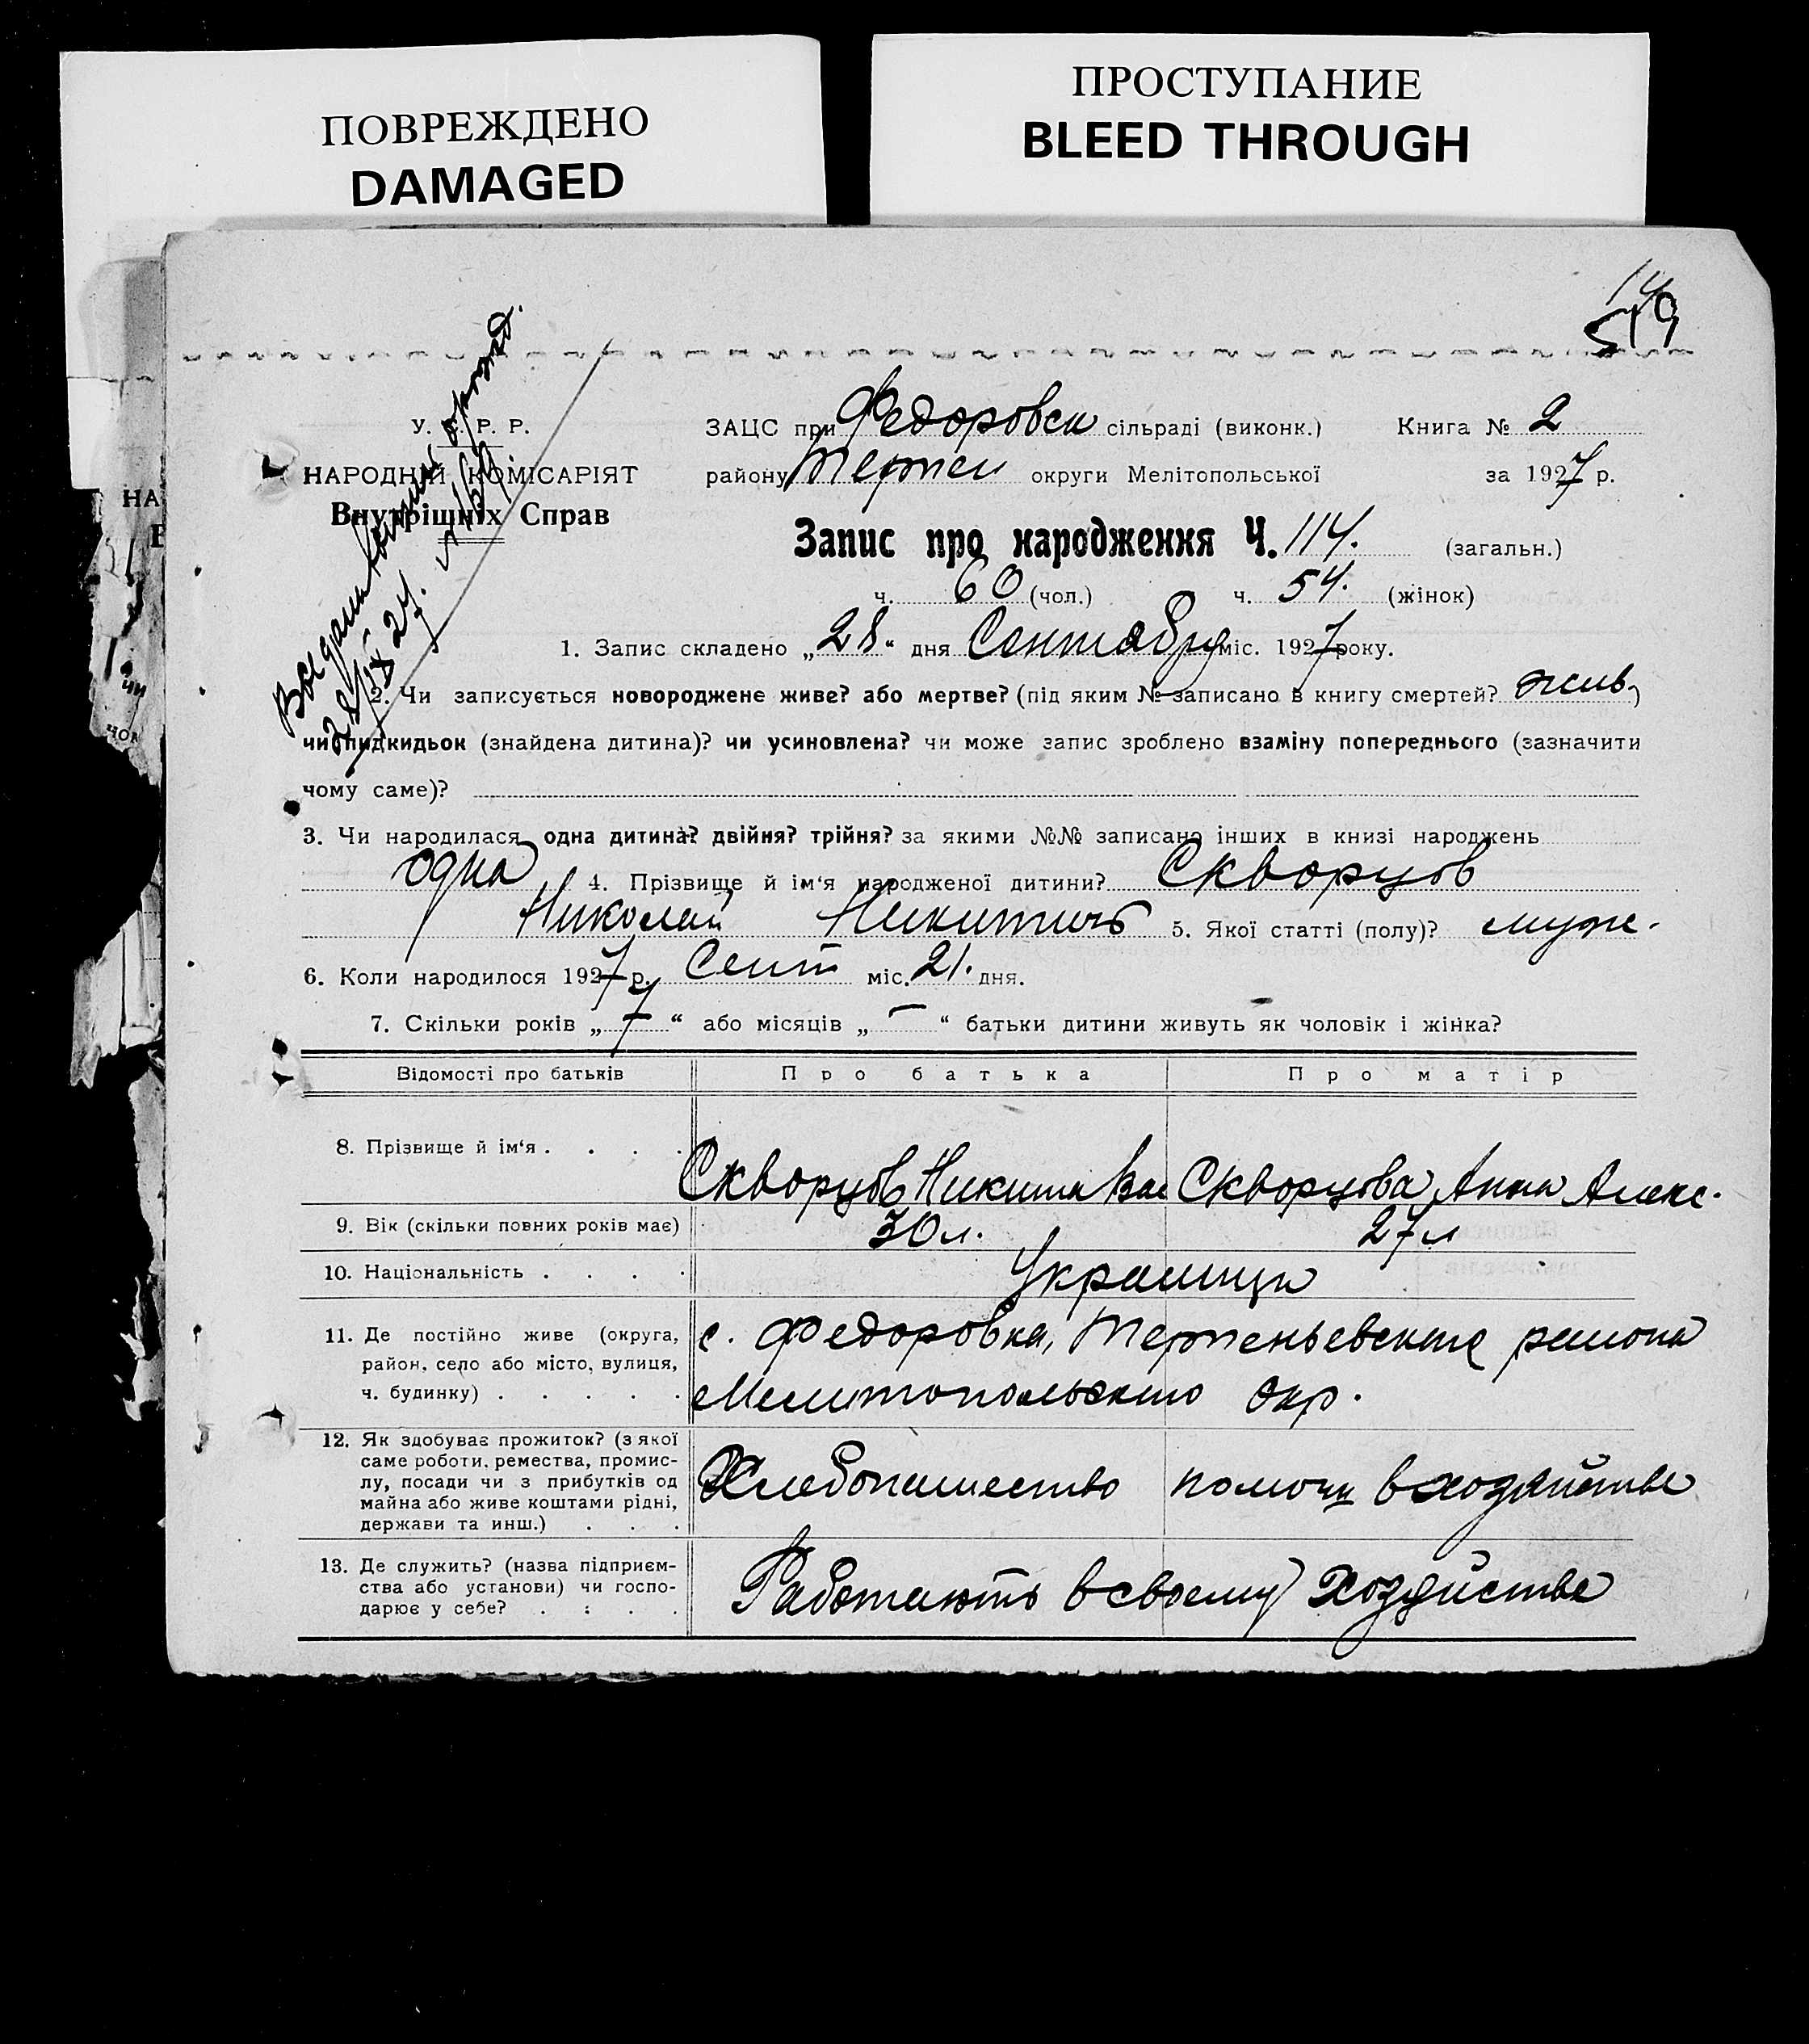 ПОВРЕЖДЕНО
DAMAGED
ПРОСТУПАНИЕ
BLEED THROUGH
У. С. Р. Р.
НАРОДНІЙ КОМІСАРІЯТ
Внутрішніх Справ
28/IX 27.
ЗАЦС при Федоровск сільраді (виконк.) Книга № 2
району Терпен округи Мелітопольської за 1927 р.
Запис про народження Ч. 114. (загальн.)
ч. 60 (чол.) ч. 54. (жінок)
1. Запис складено „28“ дня Сентября міс. 1927 року.
2. Чи записується новороджене живе? або мертве? (під яким № записано в книгу смертей?) жив
чи підкидьок (знайдена дитина)? чи усиновлена? чи може запис зроблено взаміну попереднього (зазначити
чому саме)?
3. Чи народилася одна дитина? двійня? трійня? за якими №№ записано інших в книзі народжень
одна 4. Прізвище й ім'я народженої дитини? Скворцов
Николай Никитичь 5. Якої статті (полу)? муж.
6. Коли народилося 1927 р. Сент міс. 21. дня.
7. Скільки років „7“ або місяців „—“ батьки дитини живуть як чоловік і жінка?
Відомості про батьків Про батька Про матір
8. Прізвище й ім'я . . . . Скворцов Никита Вас Скворцова Анна Алекс.
9. Вік (скільки повних років має) 30 л. 27 л
10. Національність . . . . Украинци
11. Де постійно живе (округа, с. Федоровка, Терпеньевского района
район, село або місто, вулиця,
ч. будинку) . . . . . Мелитопольского окр.
12. Як здобуває прожиток? (з якої
саме роботи, ремества, промис-
лу, посади чи з прибутків од Хлебопашество помочи в хозяйстве
майна або живе коштами рідні,
держави та инш.) . . .
13. Де служить? (назва підприєм-
ства або установи) чи госпо- Работають в своему хозяйстве
дарює у себе? . : . .